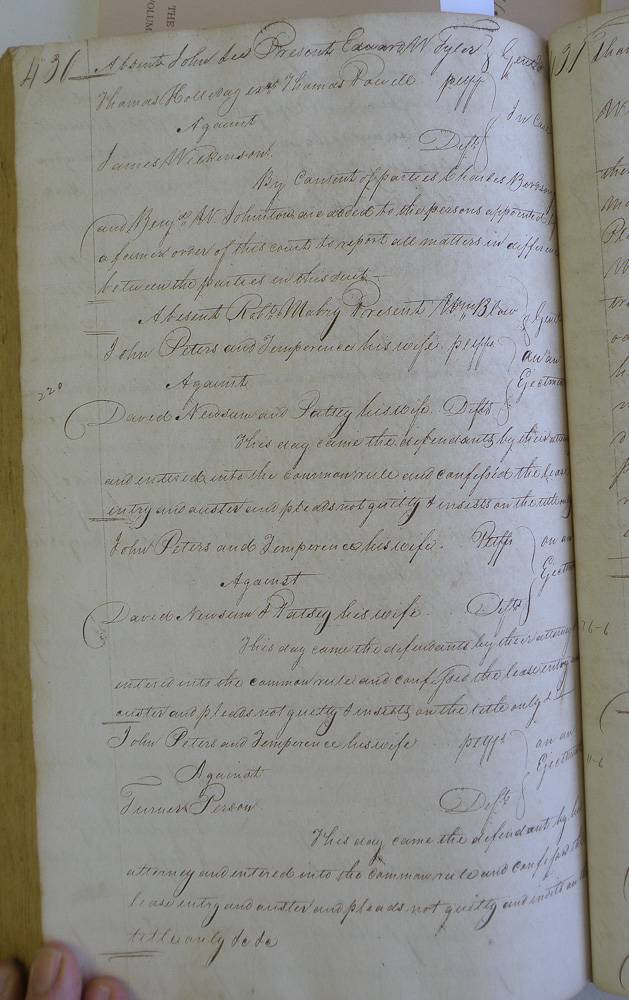 430
Absent John Present Edward W Tyler
Thomas Holliday exor Thomas Powell pltff
Against
Deft
James Wilkinson
In
By Consent of parties Charles
and Benja. W Johnston are added to the persons appointed
a former order of this court to report all matters in difference
between the parties in this suit
Absent Robt. Mabry Present Blow
John Peters and Temperence his wife pltffs
on an
Against
Ejectment
220
David Newsum and Patsey his wife. Defts
This day came the defendants by their
and entered into the common rule and confessed the lease
entry and ouster and pleads not guilty & insists on the title
John Peters and Temperence his wife. Pltffs
on an
Against
David Newsum & Patsey his wife. Defts
This day came the defendants by their attorney
entered into the common rule and confessed the lease entry
ouster and pleads not guilty & insists on the title only &
John Peters and Temperence his wife pltffs
on an
Against
Turner Person Deft
This day came the defendant by his
attorney and entered into the common rule and confessed the
lease entry and ouster and pleads not guilty and insists on
title only &c &c
THE
VOLUM